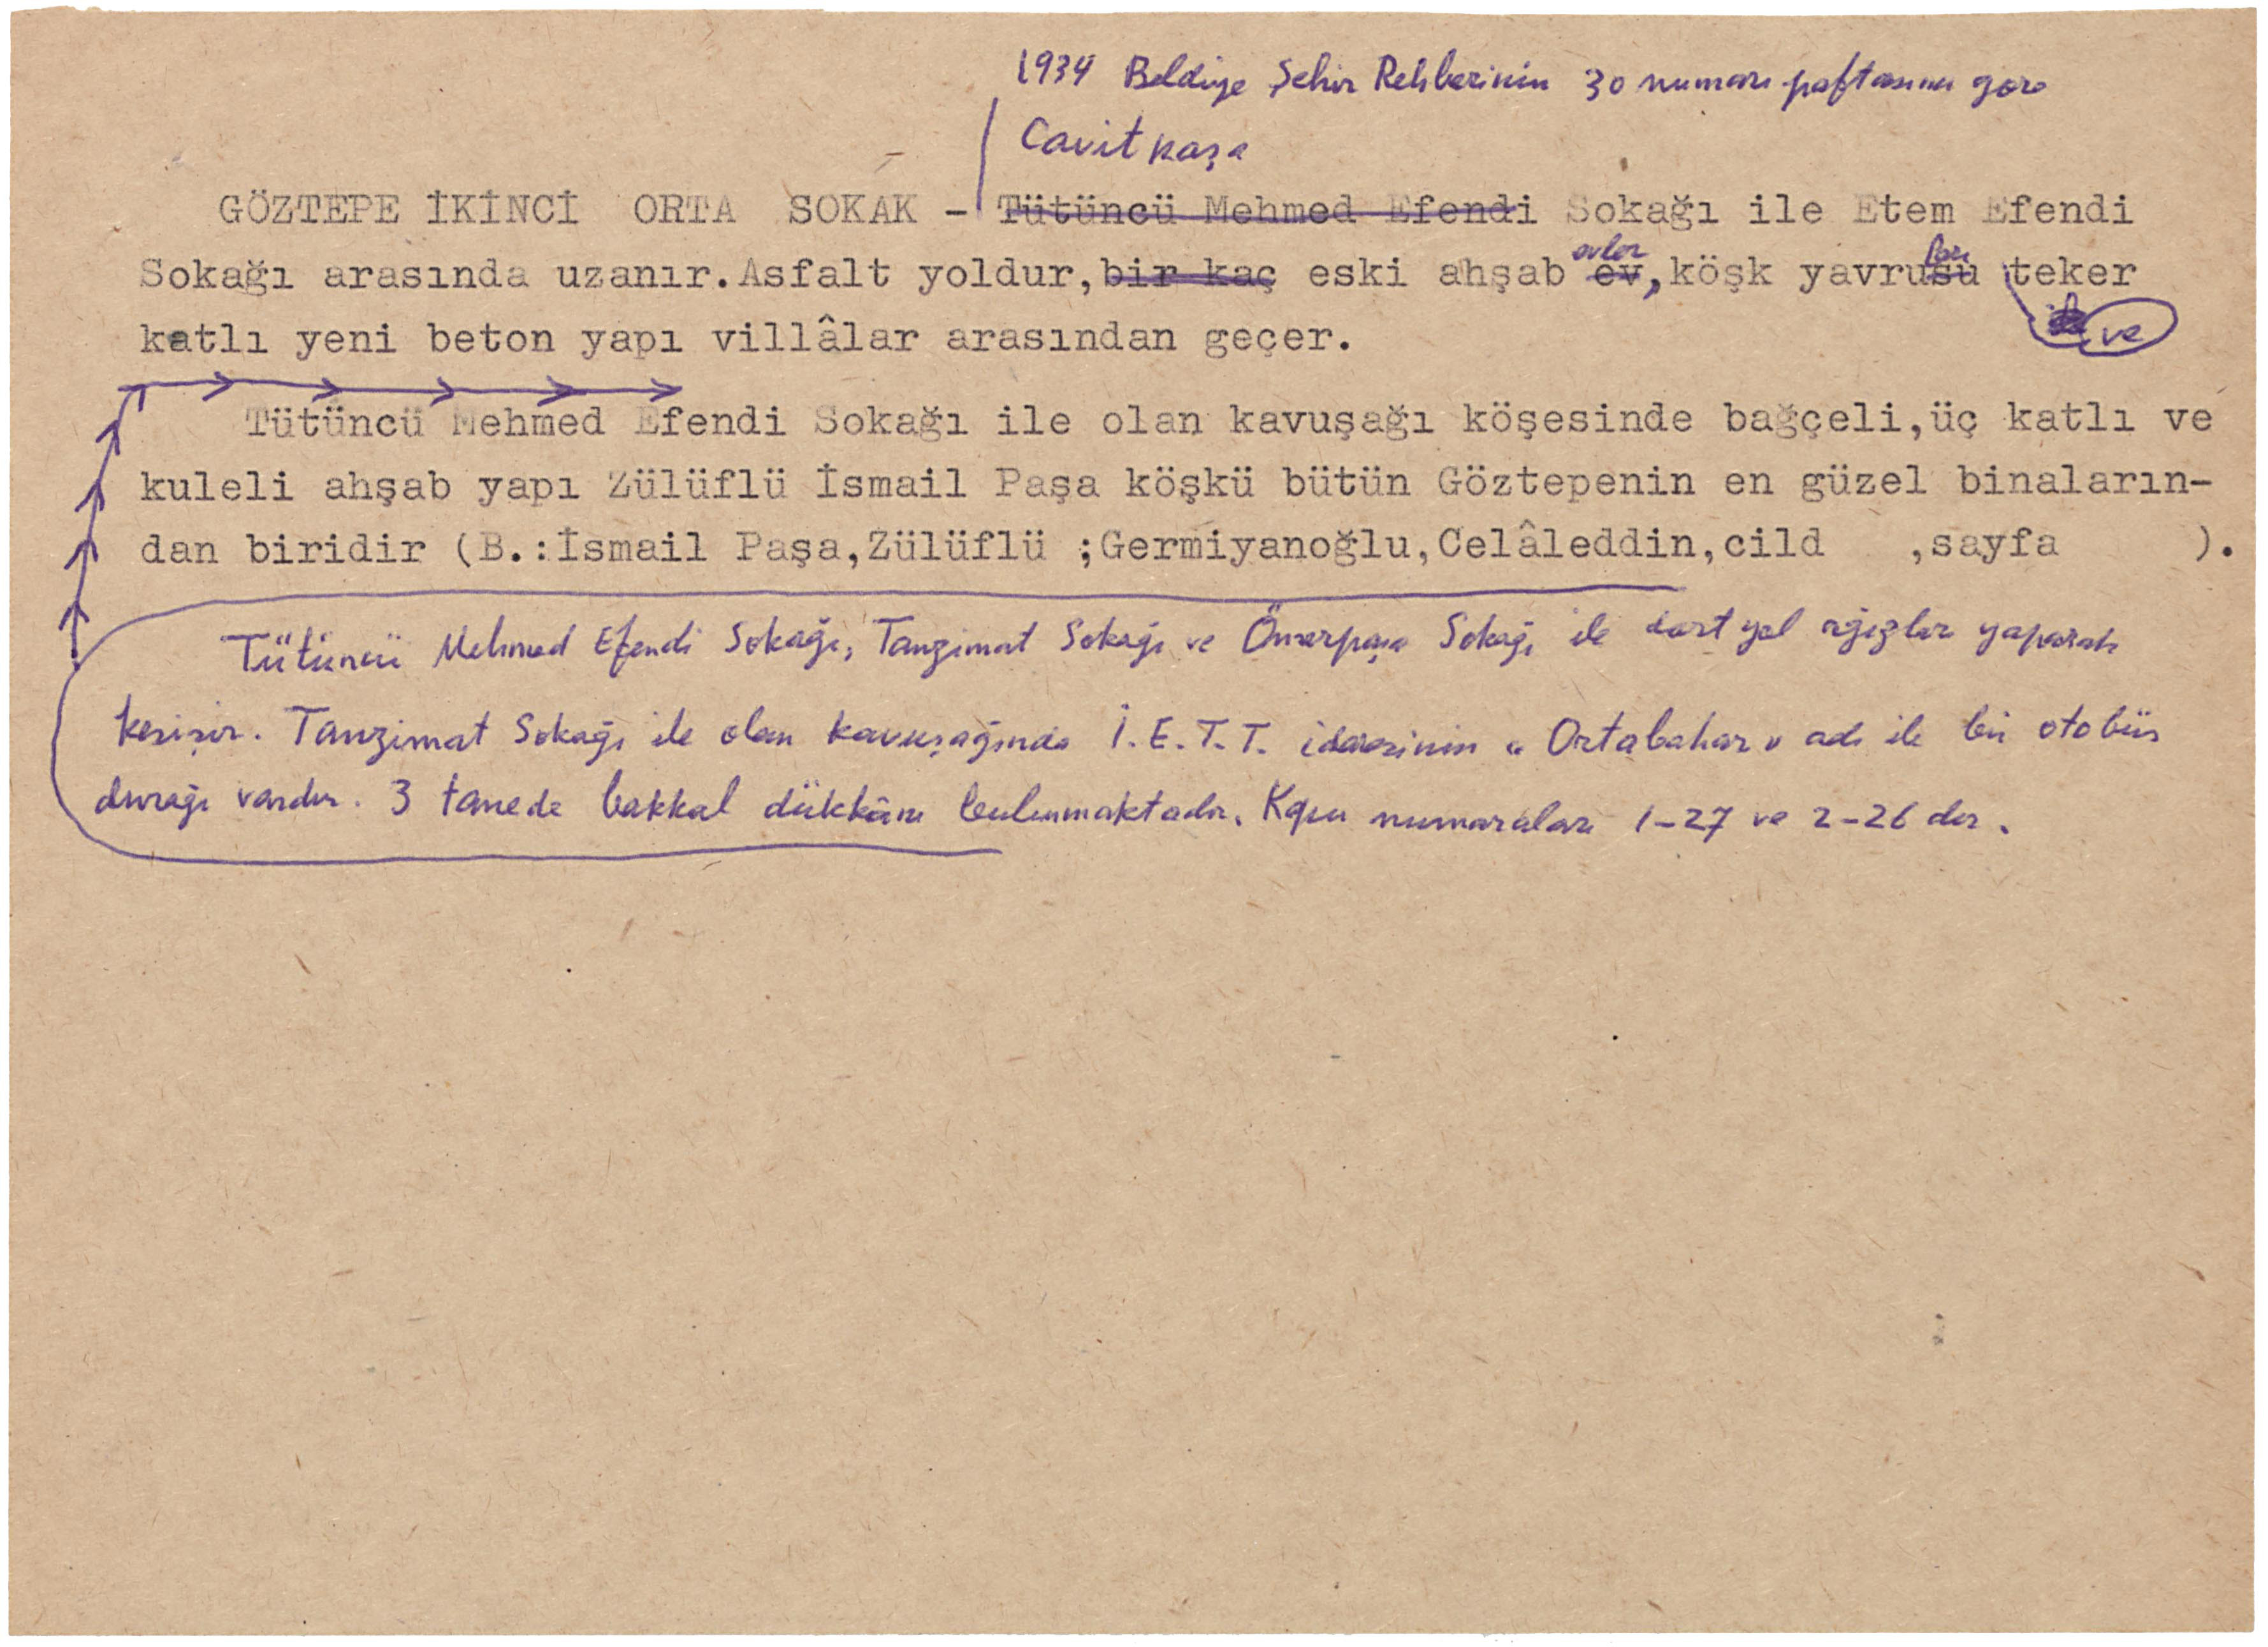 1934 Beldiye Şehir Rehberinin 30 numara paftasına göre
Cavitpaşa
GÖZTEPE İKİNCİ ORTA SOKAK - Tütüncü Mehmed Efendi Sokağı ile Etem Efendi
evler ları
Sokağı arasında uzanır.Asfalt yoldur,bir kaç eski ahşab ev,köşk yavrusu teker
ve
katlı yeni beton yapı villâlar arasından geçer.
Tütüncü Mehmed Efendi Sokağı ile olan kavuşağı köşesinde bağçeli,üç katlı ve
kuleli ahşab yapı Zülüflü İsmail Paşa köşkü bütün Göztepenin en güzel binaların-
dan biridir (B.:İsmail Paşa,Zülüflü ;Germiyanoğlu,Celâleddin,cild ,sayfa ).
Tütüncü Mehmed Efendi Sokağı, Tanzimat Sokağı ve Ömerpaşa Sokağı ile dört yol ağızları yaparak
kesişir. Tanzimat Sokağı ile olan kavuşağında İ.E.T.T. idaresinin « Ortabahar » adı ile bir otobüs
durağı vardır. 3 tanede bakkal dükkânı bulunmaktadır. Kapu numaraları 1-27 ve 2-26 dır.